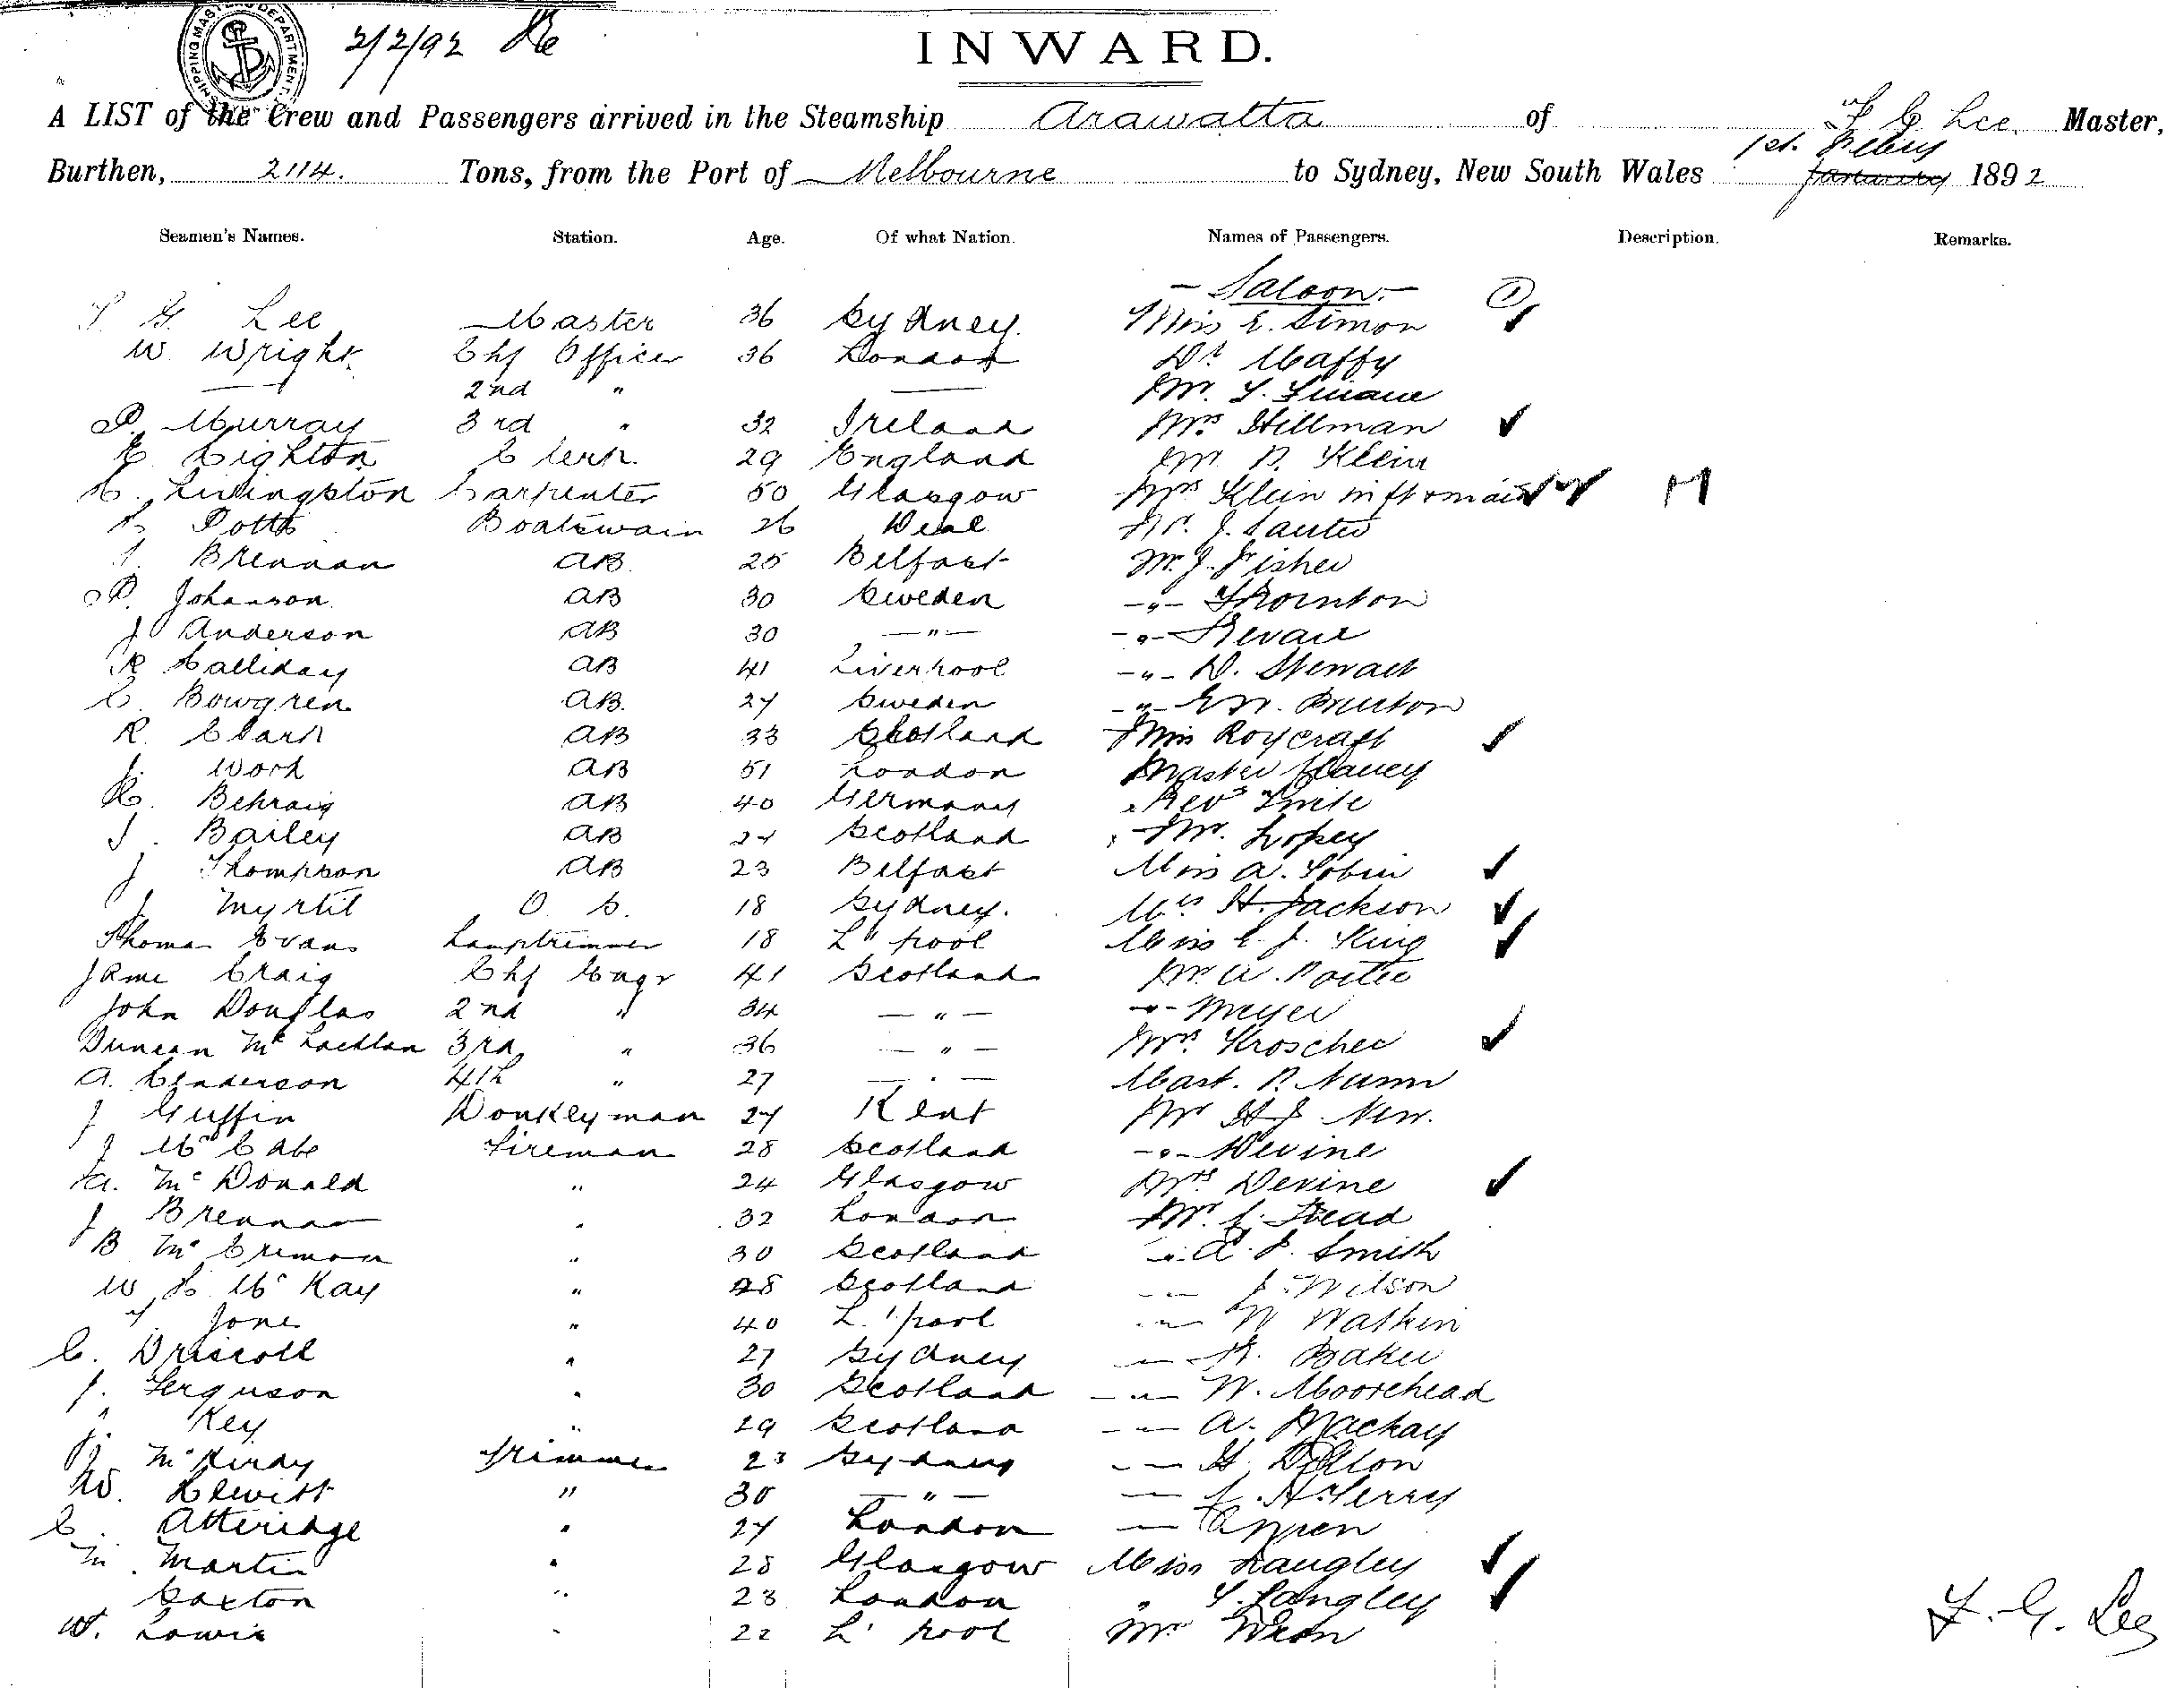 SHIPPING MASTER'S DEPARTMENT
2/2/92
INWARD.
A LIST of the Crew and Passengers arrived in the Steamship Arawatta of F G Lee Master,
1st. Feby
Burthen, 2114. Tons, from the Port of Melbourne to Sydney, New South Wales January 1892
Seamen's Names. Station. Age. Of what Nation. Names of Passengers. Description. Remarks.
— Saloon. —
F G Lee Master 36 Sydney. Miss E. Simon
W. Wright Chf Officer 36 London Dr Maffy
— 2nd " — Mr.
P. Murray 3rd " 32 Ireland Mrs Hillman
E Highton Clerk 29 England Mr. P. Klein
H. Livingston Carpenter 50 Glasgow Mrs Klein inft & maid
Potts Boatswain 26 Deal Mr. J.
Brennan AB. 25 Belfast Mr. J. Fisher
P. Johanson AB 30 Sweden -"- Thornton
J Anderson AB 30 —"— -"-
R Halliday AB 41 Liverpool -"- D. Stewart
C. Bowgren AB. 27 Sweden -"- Burton
R. Clark AB 33 Scotland Miss Roycraft
J. Work AB 51 London Master
H. Behraig AB 40 Germany Revd
J. Bailey AB 27 Scotland Mr. Lopey
J Thompson AB 23 Belfast Miss A. Tobin
J Myrtil O S. 18 Sydney. Mrs H. Jackson
Thomas Evans Lamptrimmer 18 L'pool Miss E. J. King
Jame Craig Chf Engr 41 Scotland Mr. A. Porter
John Douglas 2nd " 34 — " — -"- Meyer
Duncan Mc Lachlan 3rd " 36 — " — Mrs. Kroscher
A. Henderson 4th " 27 — " — Mast. P. Nunn
J Guffin Donkeyman 27 Kent Mr H J New.
J Mc Cabe Fireman 28 Scotland -"- Devine
A. Mc Donald " 24 Glasgow Mrs Devine
J Brennan " 32 London Mr. J. Head
B Mc Crimon " 30 Scotland -"- A. J. Smith
W H Mc Kay " 28 Scotland -"- J. Wilson
Jones " 40 L'pool -"- W Watkin
C. Driscoll " 27 Sydney -"- R. Baker
J. Ferguson " 30 Scotland -"- W. Moorehead
J. Key " 29 Scotland -"- A. Mackay
Mc Kirdy Trimmer 23 Sydney -"- H. Dillon
W. Hewitt " 30 — " — -"- Terry
C. Atteridge " 27 London -"-
M. Martin " 28 Glasgow Miss Langley
Saxton " 23 London " Langley
W. Lewis " 22 L'pool Mr
F. G. Lee